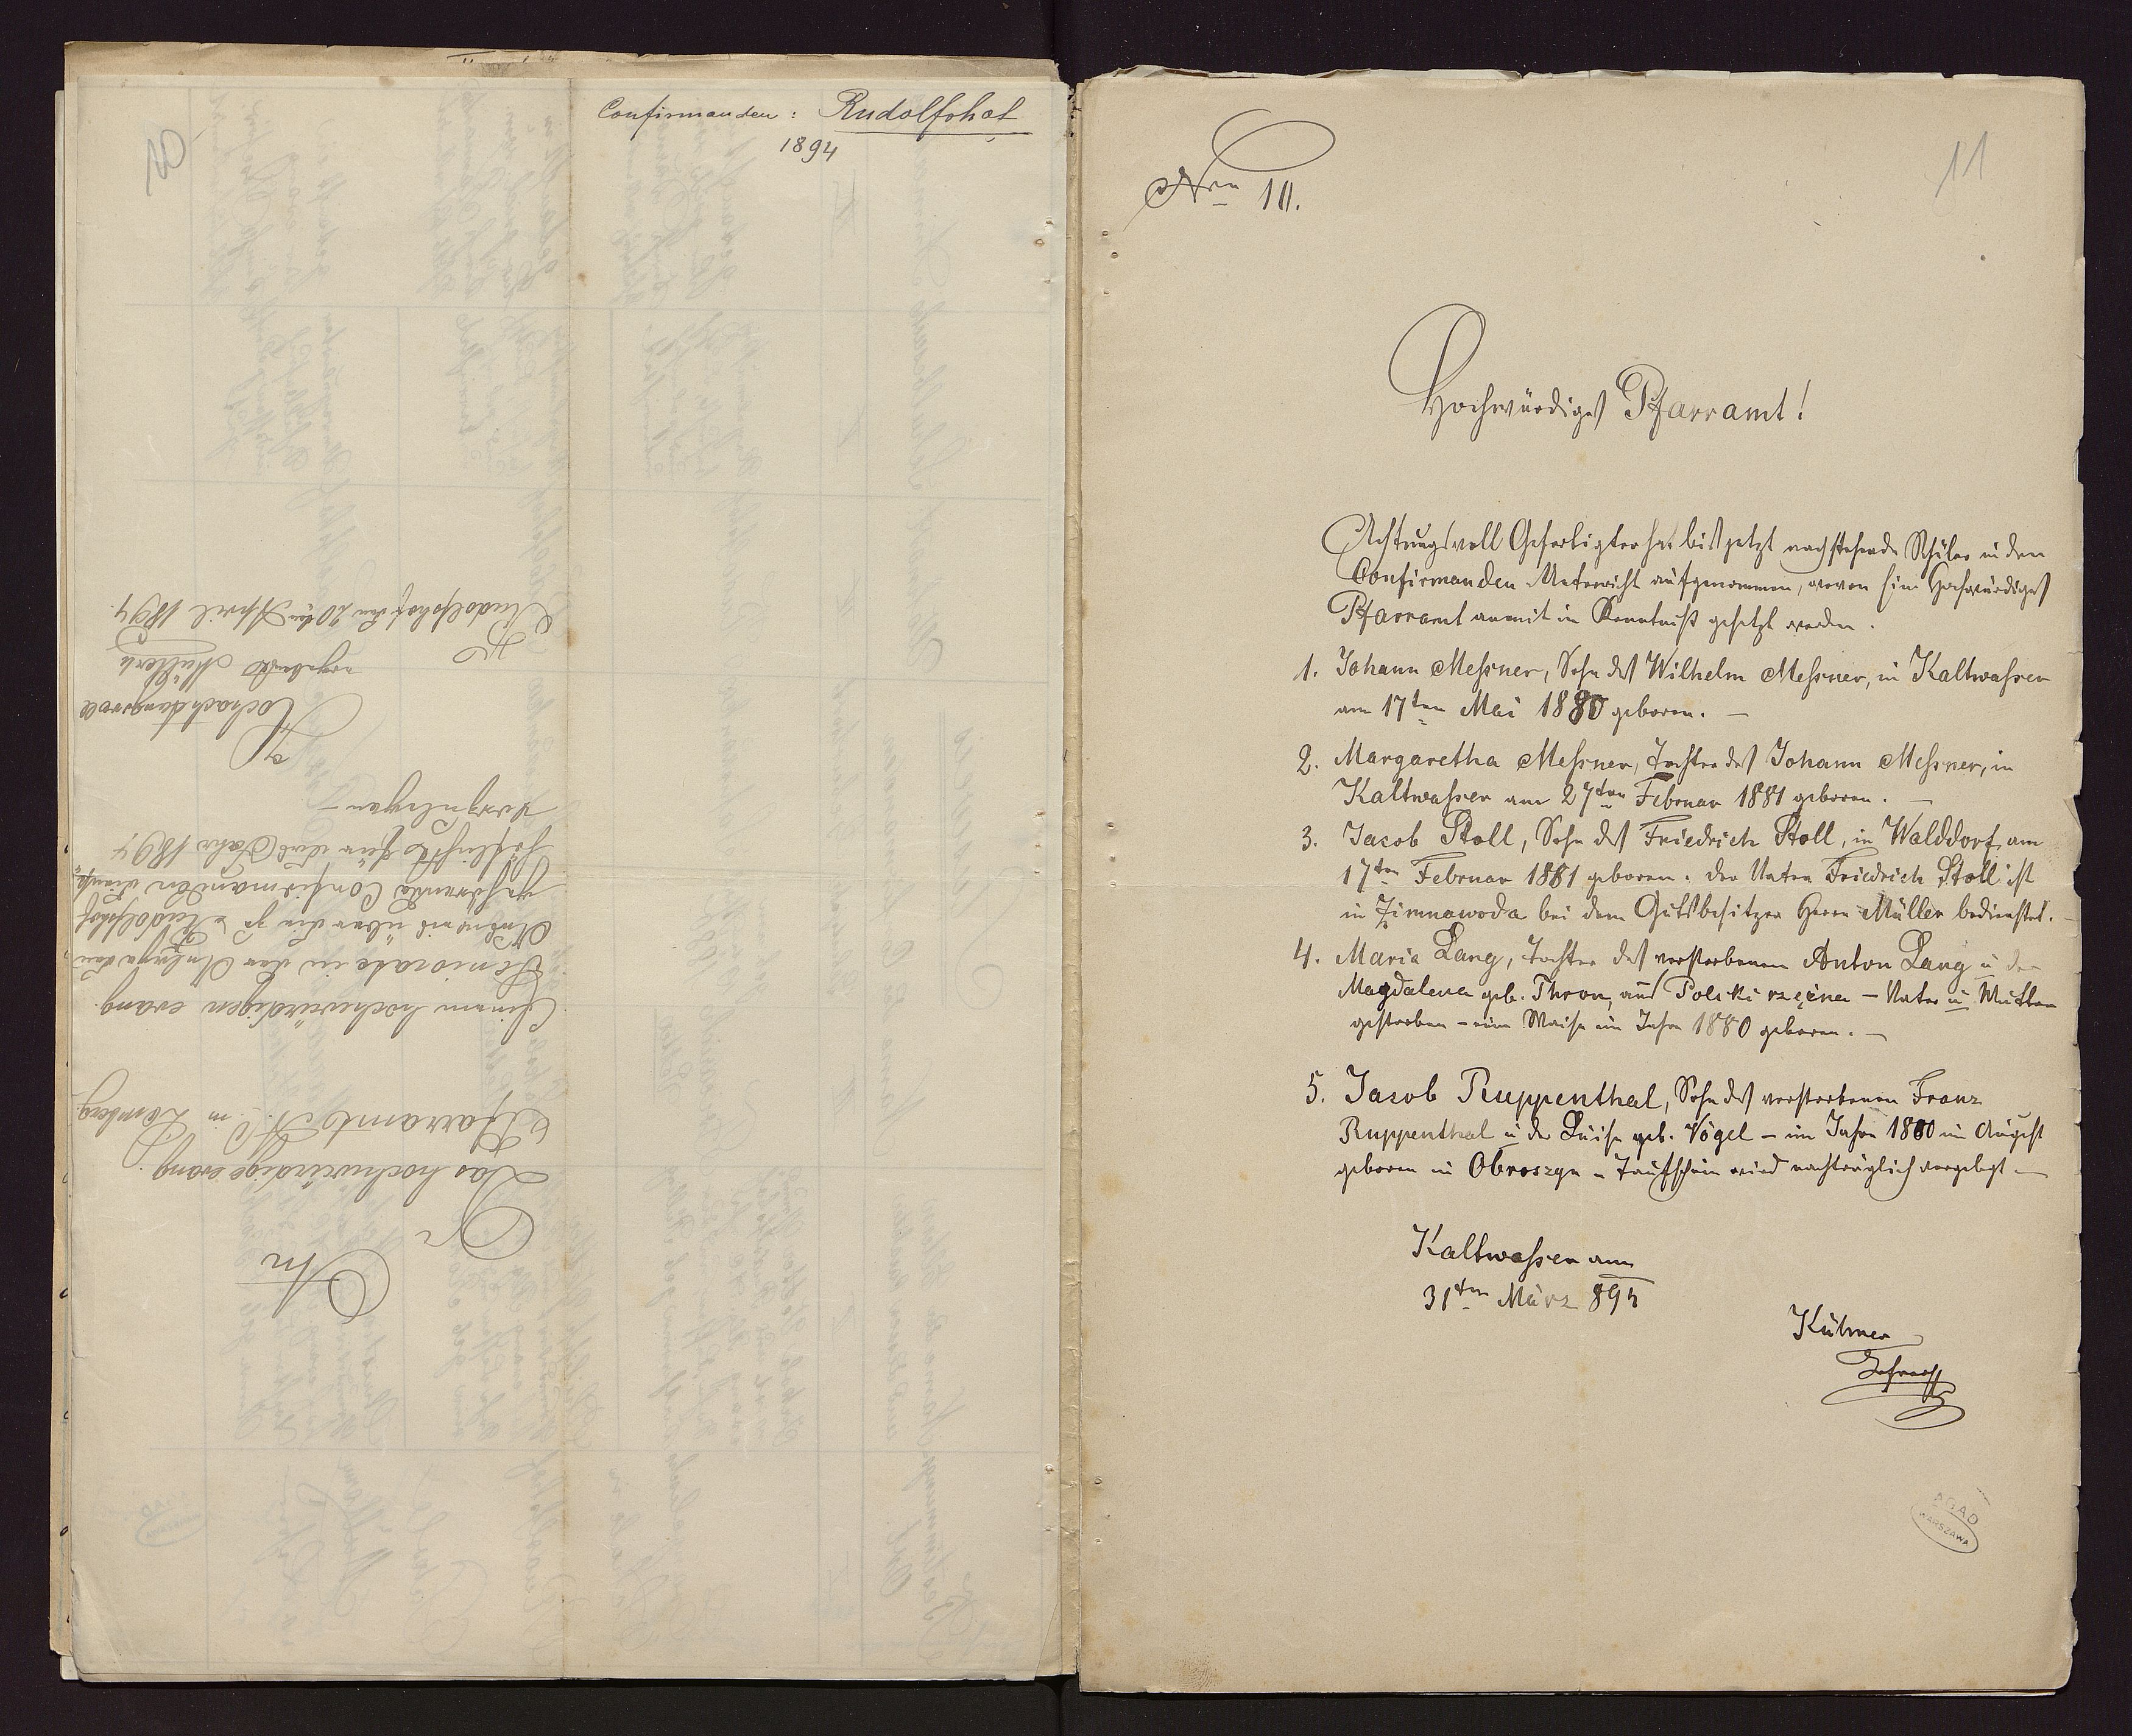 Confirmanden: Rudolfshof
1894
10
An
Das hochwürdige evang.
Pfarramt A. C. in Lemberg.
Einem hochwürdigen evang.
Seniorate in der Anlage den
Ausweis über die zu Rudolfshof
Confirmanden
höflichst für das Jahr 1894
vorzulegen
Hochachtungsvoll
ergebenste Müller
Rudolfshof den 20ten April 1894.
11
Nro 10.
Hochwürdiges Pfarramt!
Achtungsvoll Gefertigter hat bis jetzt nachstehende Schüler in den
Confirmanden-Unterricht aufgenommen, wovon Ein Hochwürdiges
Pfarramt anmit in Kenntniß gesetzt werden.
1. Johann Meßner, Sohn des Wilhelm Meßner, in Kaltwaßer
am 17ten Mai 1880 geboren. —
2. Margaretha Meßner, Tochter des Johann Meßner, in
Kaltwaßer am 27ten Februar 1881 geboren. —
3. Jacob Stoll, Sohn des Friedrich Stoll, in Walddorf am
17ten Februar 1881 geboren. Der Vater Friedrich Stoll ist
in Zimnawoda bei dem Gutsbesitzer Herrn Müller bedienstet. —
4. Maria Lang, Tochter des verstorbenen Anton Lang u der
Magdalena geb. Thron, aus — Vater u Mutter
gestorben – eine Waise im Jahre 1880 geboren. —
5. Jacob Ruppenthal, Sohn des verstorbenen Franz
Ruppenthal u der Luise geb. Vogel – im Jahre 1880 im August
geboren in Obroszyn – Taufschein wird nachträglich vorgelegt —
Kaltwaßer am
31ten März 894
Kübner
Lehrer
AGAD
WARSZAWA